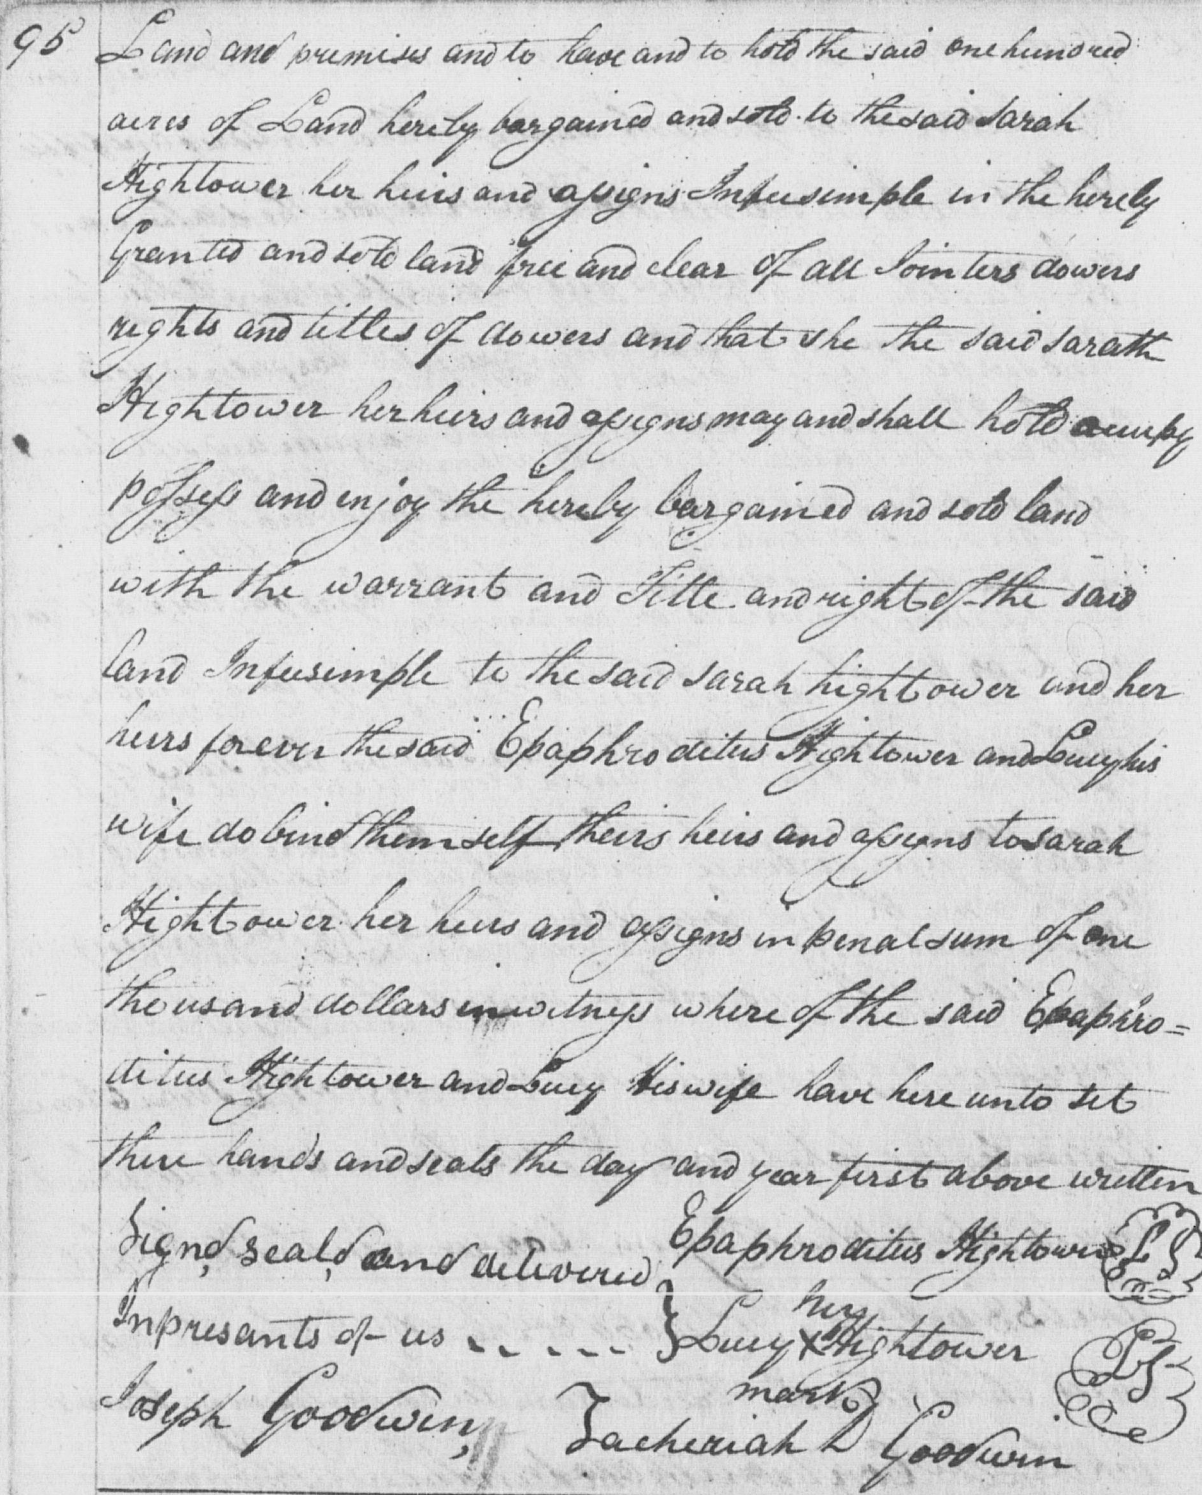 95
Land and premises and to have and to hold the said one hundred
acres of Land hereby bargained and sold to the said Sarah
Hightower her heirs and assigns Infeesimple in the hereby
Granted and sold land free and clear of all Jointers dowers
rights and titles of dowers and that she the said sarath
Hightower her heirs and assigns may and shall hold ocupy
possess and enjoy the hereby bargained and sold land
with the warrant and Title and right of the said
land Infeesimple to the said sarah hightower and her
heirs forever the said Epaphroditus Hightower and Lucy his
wife do bind themself theirs heirs and assigns to Sarah
Hightower her heirs and assigns in penal sum of one
thousand dollars in witness where of the said Epaphro=
ditus Hightower and Lucy His wife have here unto set
there hands and seals the day and year first above written
Signd, seald, and delivered Epaphroditus Hightower LS
Inpresants of us . . . . . } Lucy her X mark Hightower LS
Joseph Goodwin, Zacheriah Goodwin